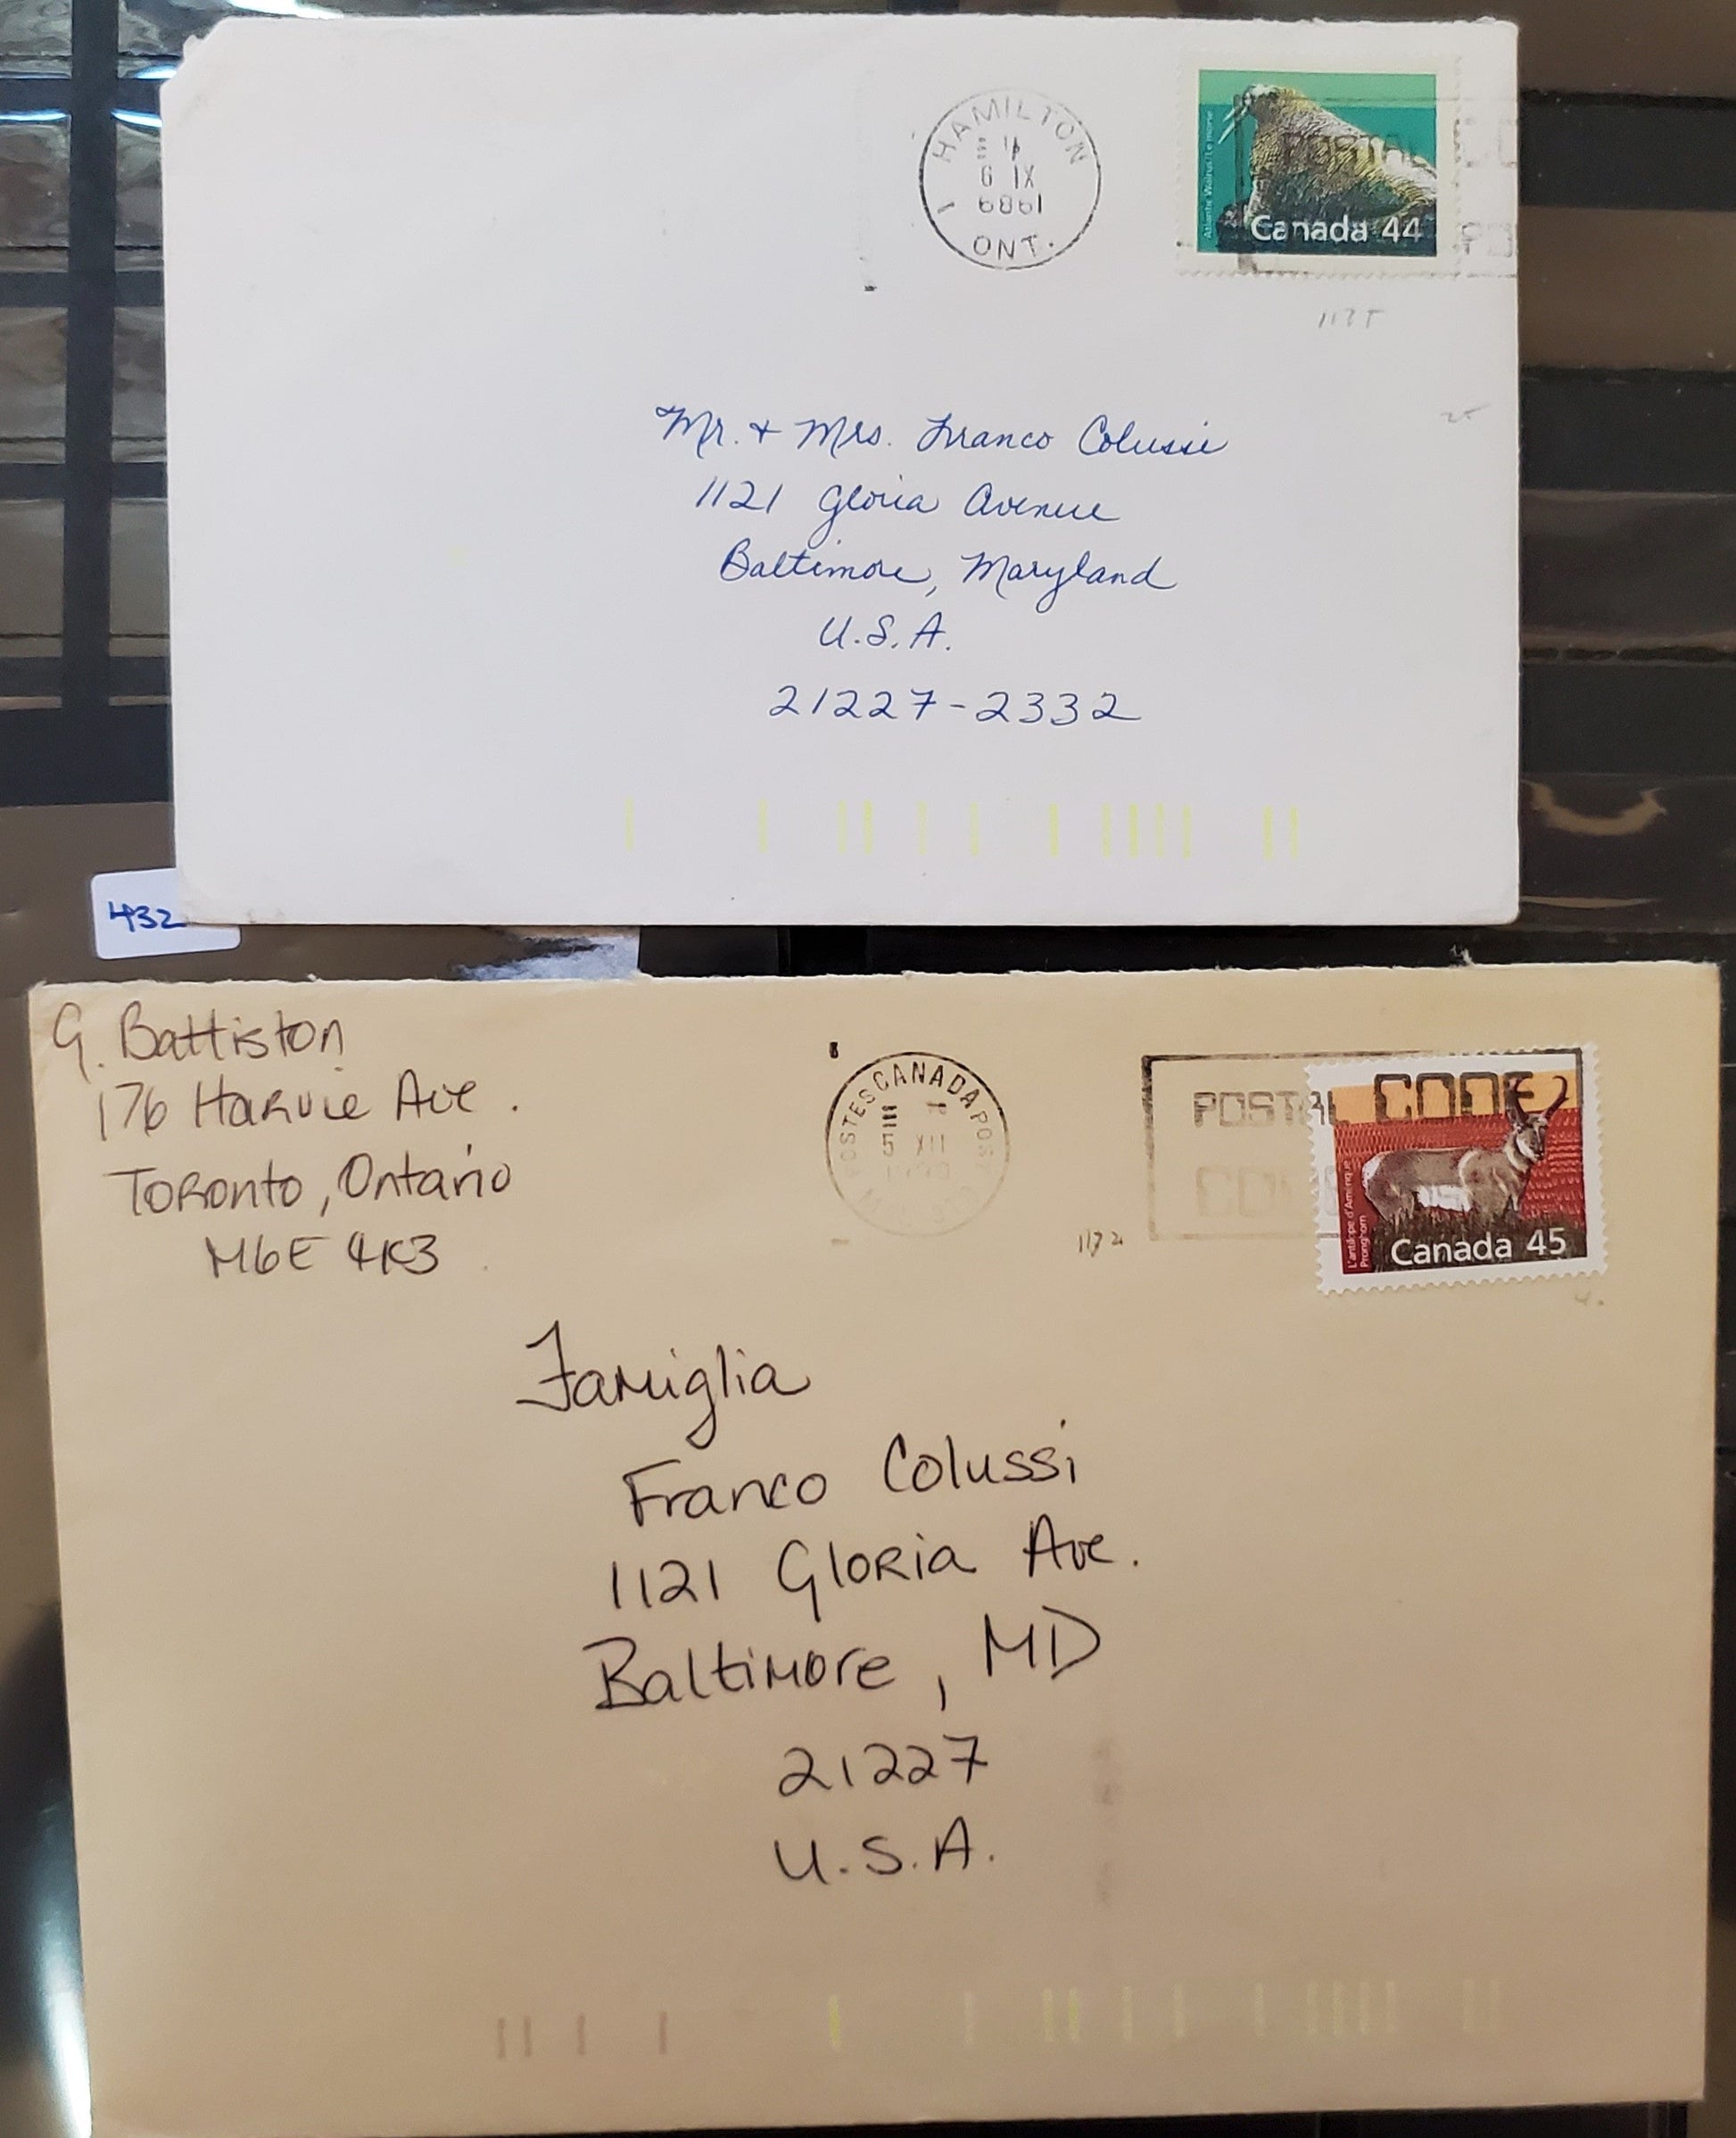 HAMILTON
6 IX
1989
ONT.
Atlantic Walrus/Le morse
POSTAL CO
Canada 44
Mr. + Mrs. Franco Colussi
1121 Gloria Avenue
Baltimore, Maryland
U.S.A.
21227-2332
432
G. Battiston
176 Harvie Ave.
Toronto, Ontario
M6E 4K3
POSTES CANADA POST
5 XII
POSTAL CODE
CODE
L'antilope d'Amérique
Pronghorn
Canada 45
1172
Famiglia
Franco Colussi
1121 Gloria Ave.
Baltimore, MD
21227
U.S.A.